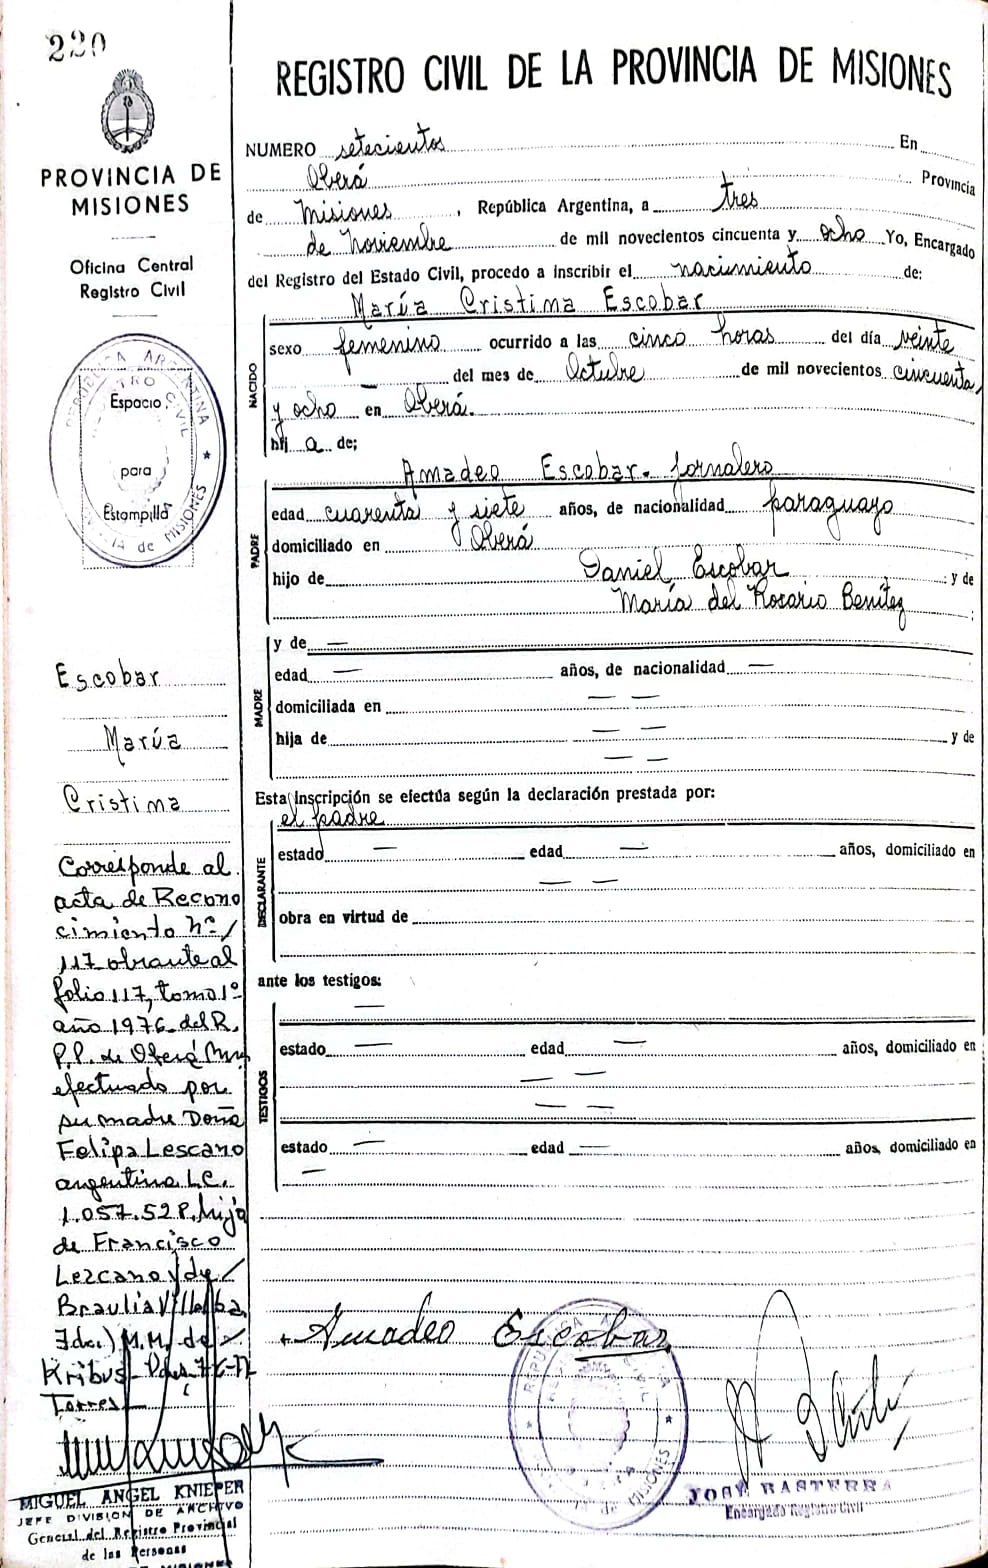 220
PROVINCIA DE
MISIONES
Oficina Central
Registro Civil
REPUBLICA ARGENTINA
REGISTRO CIVIL
PCIA de MISIONES
Espacio
para
Estampilla
REGISTRO CIVIL DE LA PROVINCIA DE MISIONES
NUMERO setecientos En
Oberá Provincia
de Misiones, República Argentina, a tres
de Noviembre de mil novecientos cincuenta y ocho Yo, Encargado
del Registro del Estado Civil, procedo a inscribir el nacimiento de:
María Cristina Escobar
NACIDO
sexo femenino ocurrido a las cinco horas del día veinte
— del mes de Octubre de mil novecientos cincuenta/
y ocho en Oberá.
hij a de;
Amadeo Escobar. Jornalero
PADRE
edad cuarenta y siete años, de nacionalidad paraguayo
domiciliado en Oberá
hijo de Daniel Escobar y de
María del Rosario Benítez ;
y de —
MADRE
edad — años, de nacionalidad —
domiciliada en — —
hija de — — y de
— —
Esta Inscripción se efectúa según la declaración prestada por:
el padre
DECLARANTE
estado — edad — años, domiciliado en
— —
obra en virtud de
ante los testigos:
—
TESTIGOS
estado — edad — años, domiciliado en
— —
— —
estado — edad — años, domiciliado en
—
Escobar
María
Cristina
Corresponde al
acta de Recono
cimiento Nº/
117 obrante al
folio 117, tomo 1º
año 1976 del R.
P.P. de Oberá Mnes
efectuado por
su madre Doña
Felipa Lescano
argentina L.C.
1.057.528, hija
de Francisco
Lezcano y de/
Braulia Villalba
M.M. de
Kribus
Torres
Amadeo Escobar
REPUBLICA
MISIONES
JOSÉ BASTERRA
Encargado Registro Civil
MIGUEL ANGEL KNIEPER
JEFE DIVISION DE ARCHIVO
General del Registro Provincial
de las Personas
MISIONES